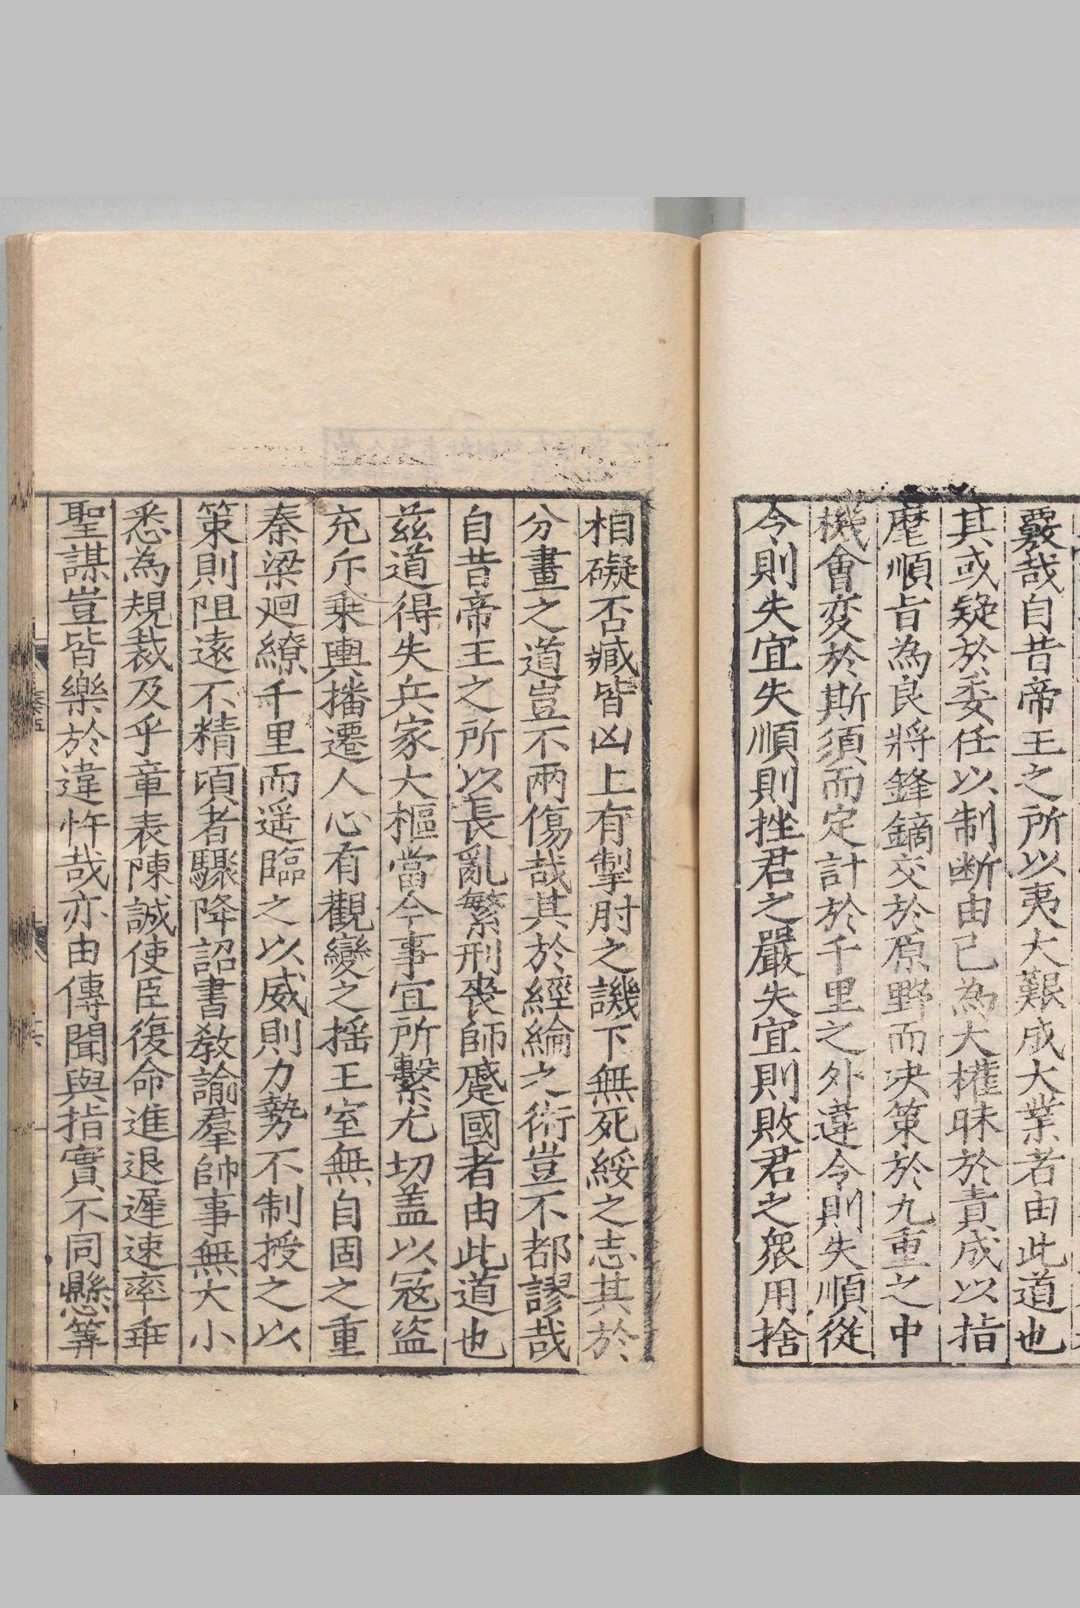 覈哉自昔帝王之所以夷大艱成大業者由此道也
其或疑於委任以制断由已為大權昧於責成以指
麾順旨為良將鋒鏑交於原野而决策於九重之中
機會変於斯須而定計於千里之外違令則失順從
令則失宜失順則挫君之嚴失宜則敗君之衆用捨
相礙否臧皆凶上有掣肘之譏下無死綏之志其於
分畫之道豈不兩傷哉其於經綸之術豈不都謬哉
自昔帝王之所以長亂繁刑喪師蹙國者由此道也
兹道得失兵家大樞當今事宜所繫尤切盖以冦盗
充斥乗輿播遷人心有觀變之揺王室無自固之重
秦梁廻繚千里而遥臨之以威則力勢不制授之以
策則阻遠不精頃者驟降詔書教諭羣帥事無大小
悉為規裁及乎章表陳誠使臣復命進退遲速率乖
聖謀豈皆樂於違忤哉亦由傳聞與指實不同懸筭